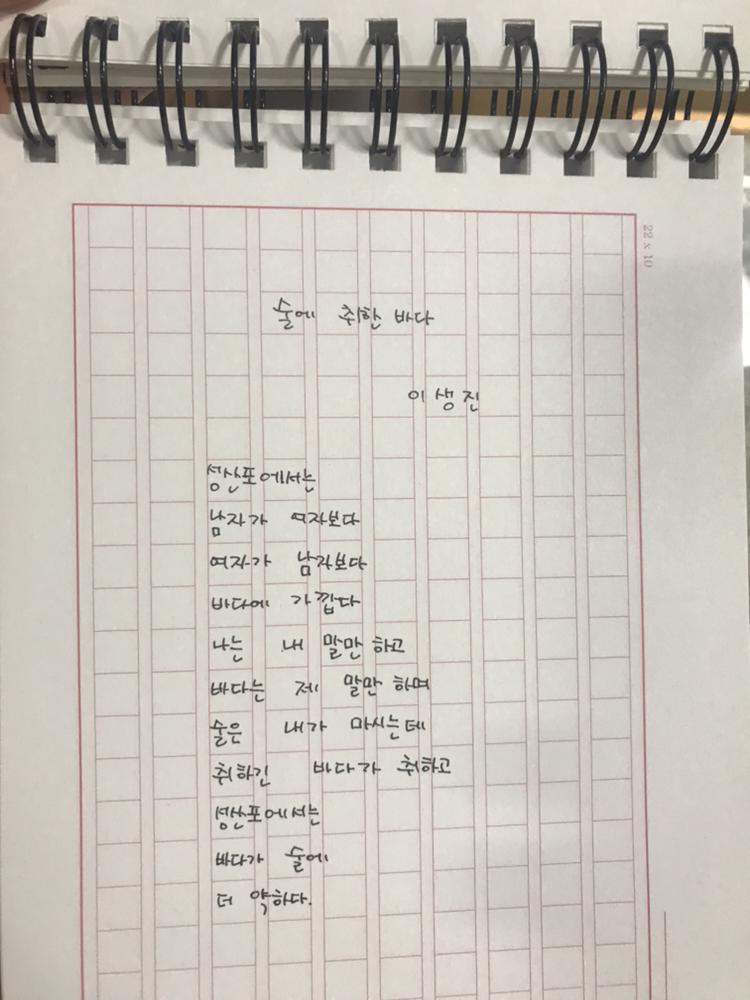 22 x 10
술에 취한 바다
이생진
성산포에서는
남자가 여자보다
여자가 남자보다
바다에 가깝다
나는 내 말만 하고
바다는 제 말만 하며
술은 내가 마시는데
취하긴 바다가 취하고
성산포에서는
바다가 술에
더 약하다.